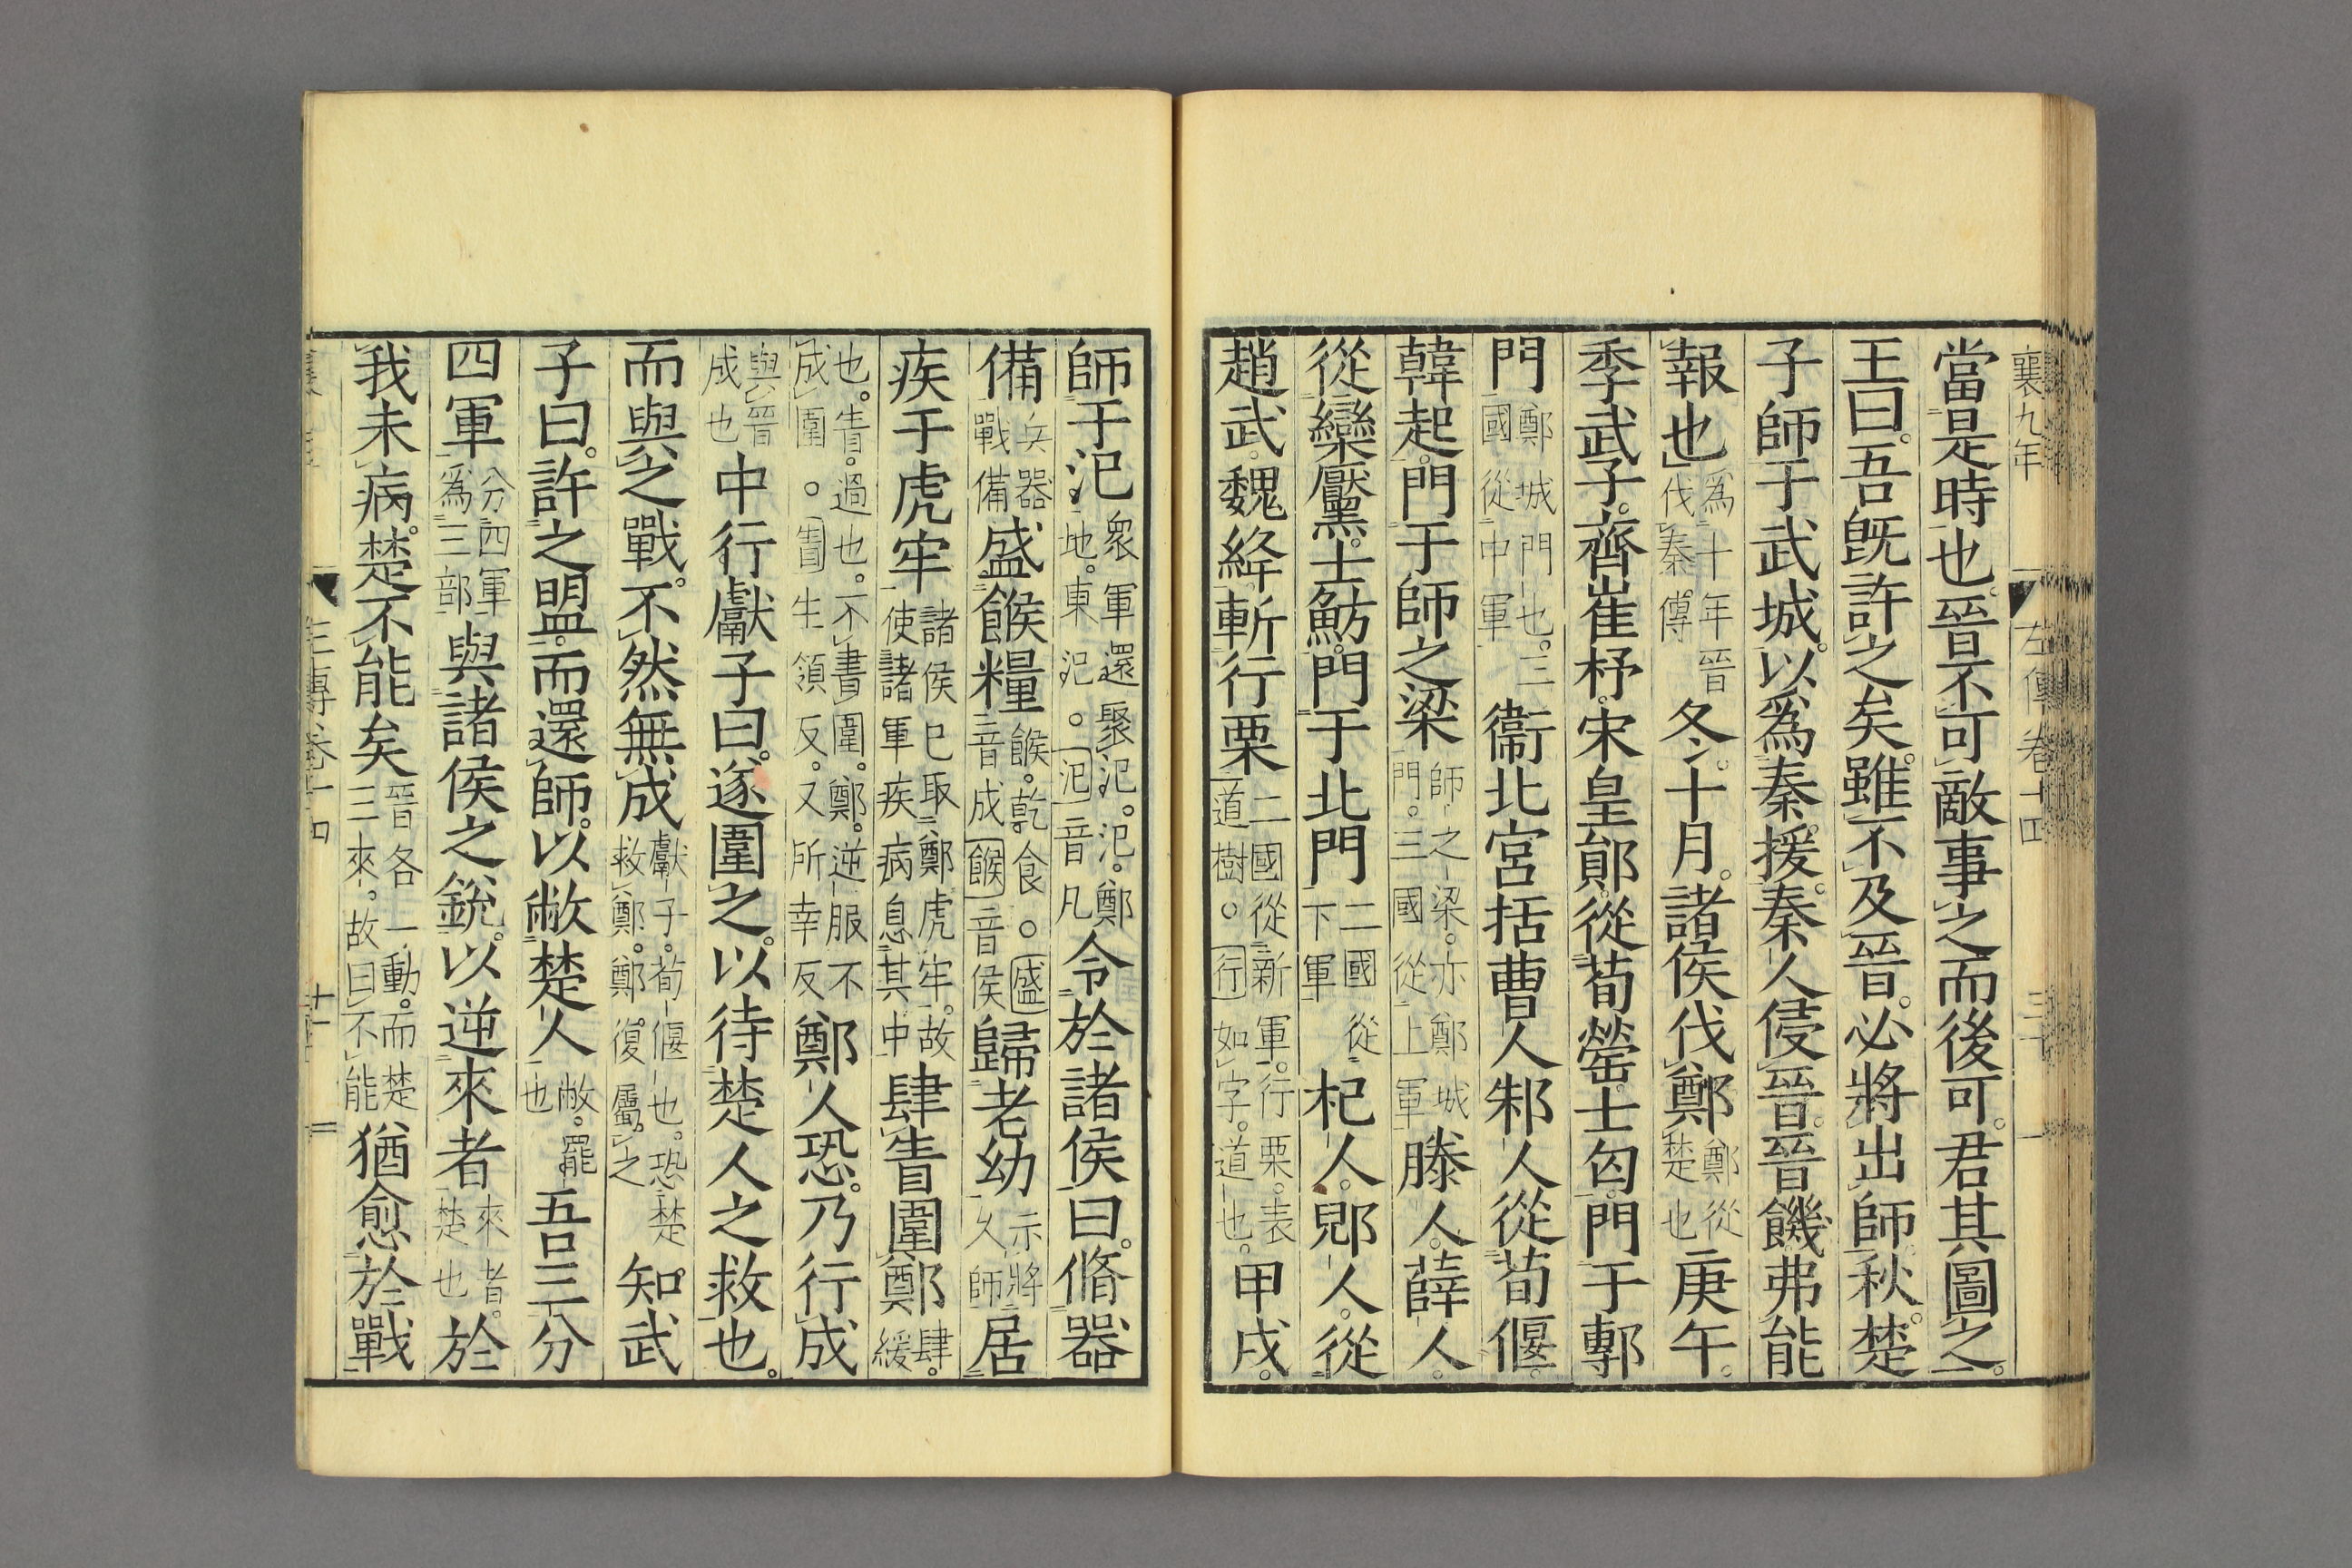 襄九年 左傳卷十四
當是時也。晉不可敵事之而後可。君其圖之。
王曰。吾既許之矣。雖不及晉。必將出師。秋。楚
子師于武城。以爲秦援。秦人侵晉。晉饑弗能
報也爲十年晉伐秦傳冬。十月。諸侯伐鄭鄭從楚也庚午。
季武子。齊崔杼。宋皇鄖。從荀罃。士匄。門于鄟
門鄭城門也。三國從中軍衞北宮括曹人邾人從荀偃。
韓起。門于師之梁師之梁。亦鄭城門。三國從上軍滕人。薛人。
從欒黶。士魴。門于北門二國從下軍杞人。郳人。從
趙武。魏絳。斬行栗二國從新軍。行栗。表道樹。○行如字。道也。甲戌。
師于氾。衆軍還聚氾。氾。鄭地。東氾。○氾音凡令於諸侯曰。脩器
備兵器戰備盛餱糧餱。乾食。○盛音成餱音侯歸老幼示將久師居
疾于虎牢諸侯已取鄭虎牢。故使諸軍疾病息其中肆眚圍鄭肆。緩
也。眚。過也。不書圍。鄭。逆服不成圍。○眚生領反。又所幸反鄭人恐。乃行成
與晉成也中行獻子曰。遂圍之。以待楚人之救也。
而與之戰。不然無成獻子。荀偃也。恐楚救鄭。鄭。復屬。之知武
子曰。許之盟。而還師。以敝楚人敝。罷也吾三分
四軍分四軍爲三部與諸侯之銳。以逆來者來者。楚也於
我未病。楚不能矣晉各一動。而楚三來。故曰不能猶愈於戰